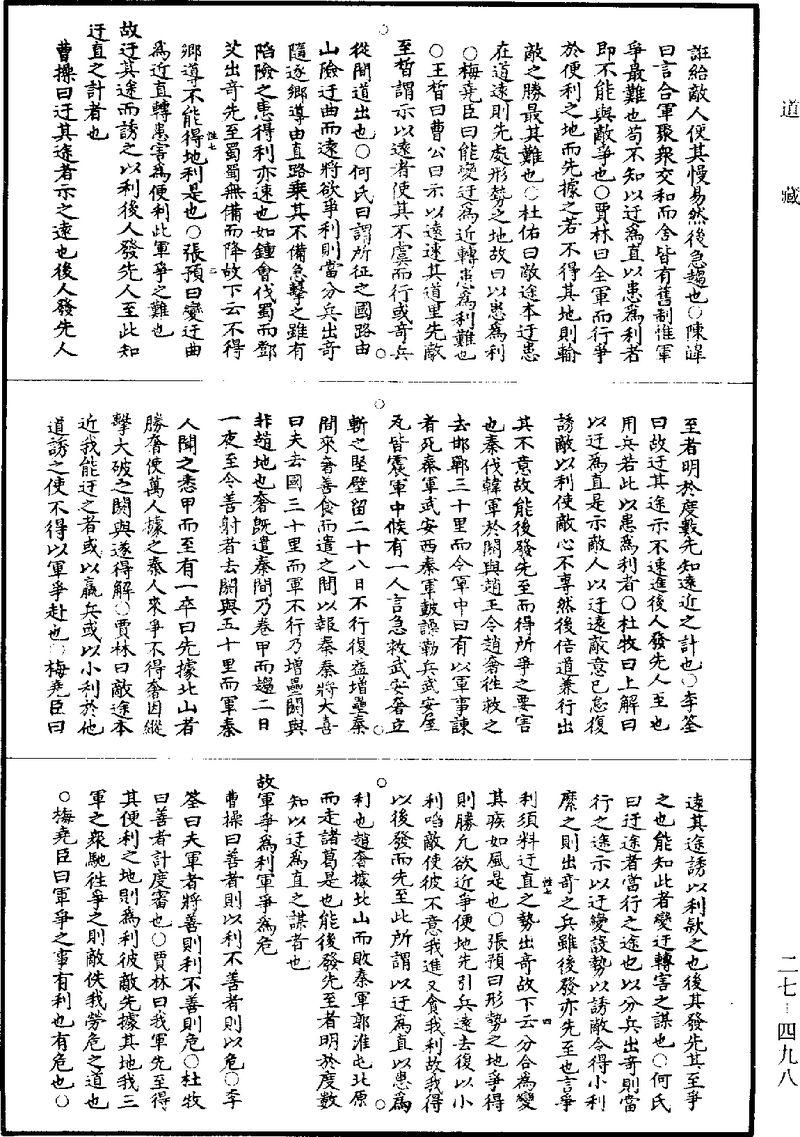 道藏
誑紿敵人使其慢易然後急趨也○陳皡
曰言合軍聚衆交和而舍皆有舊制惟軍
爭最難也苟不知以迂爲直以患爲利者
即不能與敵爭也○賈林曰全軍而行爭
於便利之地而先據之若不得其地則輸
敵之勝最其難也○杜佑曰敵途本迂患
在道遠則先處形勢之地故曰以患爲利
○梅堯臣曰能變迂爲近轉患爲利難也
○王晳曰曹公曰示以遠速其道里先敵
至晳謂示以遠者使其不虞而行或奇兵
從間道出也○何氏曰謂所征之國路由
山險迂曲而遠將欲爭利則當分兵出奇
隨逐鄉導由直路乘其不備急擊之雖有
陷險之患得利亦速也如鍾會伐蜀而鄧
艾出奇先至蜀蜀無備而降故下云不得
鄉導不能得地利是也○張預曰變迂曲
爲近直轉患害爲便利此軍爭之難也
故迂其途而誘之以利後人發先人至此知
迂直之計者也
曹操曰迂其途者示之遠也後人發先人
至者明於度數先知遠近之計也○李筌
曰故迂其途示不速進後人發先人至也
用兵若此以患爲利者○杜牧曰上解曰
以迂爲直是示敵人以迂遠敵意已怠復
誘敵以利使敵心不專然後倍道兼行出
其不意故能後發先至而得所爭之要害
也秦伐韓軍於閼與趙王令趙奢往救之
去邯鄲三十里而令軍中曰有以軍事諫
者死秦軍武安西秦軍鼓譟勒兵武安屋
瓦皆震軍中候有一人言急救武安奢立
斬之堅壁留二十八日不行復益增壘秦
間來奢善食而遣之間以報秦秦將大喜
曰夫去國三十里而軍不行乃增壘閼與
非趙地也奢既遣秦間乃卷甲而趨二日
一夜至令善射者去閼與五十里而軍秦
人聞之悉甲而至有一卒曰先據北山者
勝奢使萬人據之秦人來爭不得奢因縱
擊大破之閼與遂得解○賈林曰敵途本
近我能迂之者或以羸兵或以小利於他
道誘之使不得以軍爭赴也○梅堯臣曰
遠其途誘以利欵之也後其發先其至爭
之也能知此者變迂轉害之謀也○何氏
曰迂途者當行之途也以分兵出奇則當
行之途示以迂變設勢以誘敵令得小利
縻之則出奇之兵雖後發亦先至也言爭
利須料迂直之勢出奇故下云分合爲變
其疾如風是也○張預曰形勢之地爭得
則勝凡欲近爭便地先引兵遠去復以小
利啗敵使彼不意我進又貪我利故我得
以後發而先至此所謂以迂爲直以患爲
利也趙奢據北山而敗秦軍郭淮屯北原
而走諸葛是也能後發先至者明於度數
知以迂爲直之謀者也
故軍爭爲利軍爭爲危
曹操曰善者則以利不善者則以危○李
筌曰夫軍者將善則利不善則危○杜牧
曰善者計度審也○賈林曰我軍先至得
其便利之地則爲利彼敵先據其地我三
軍之衆馳往爭之則敵佚我勞危之道也
○梅堯臣曰軍爭之事有利也有危也○
二七－四九八